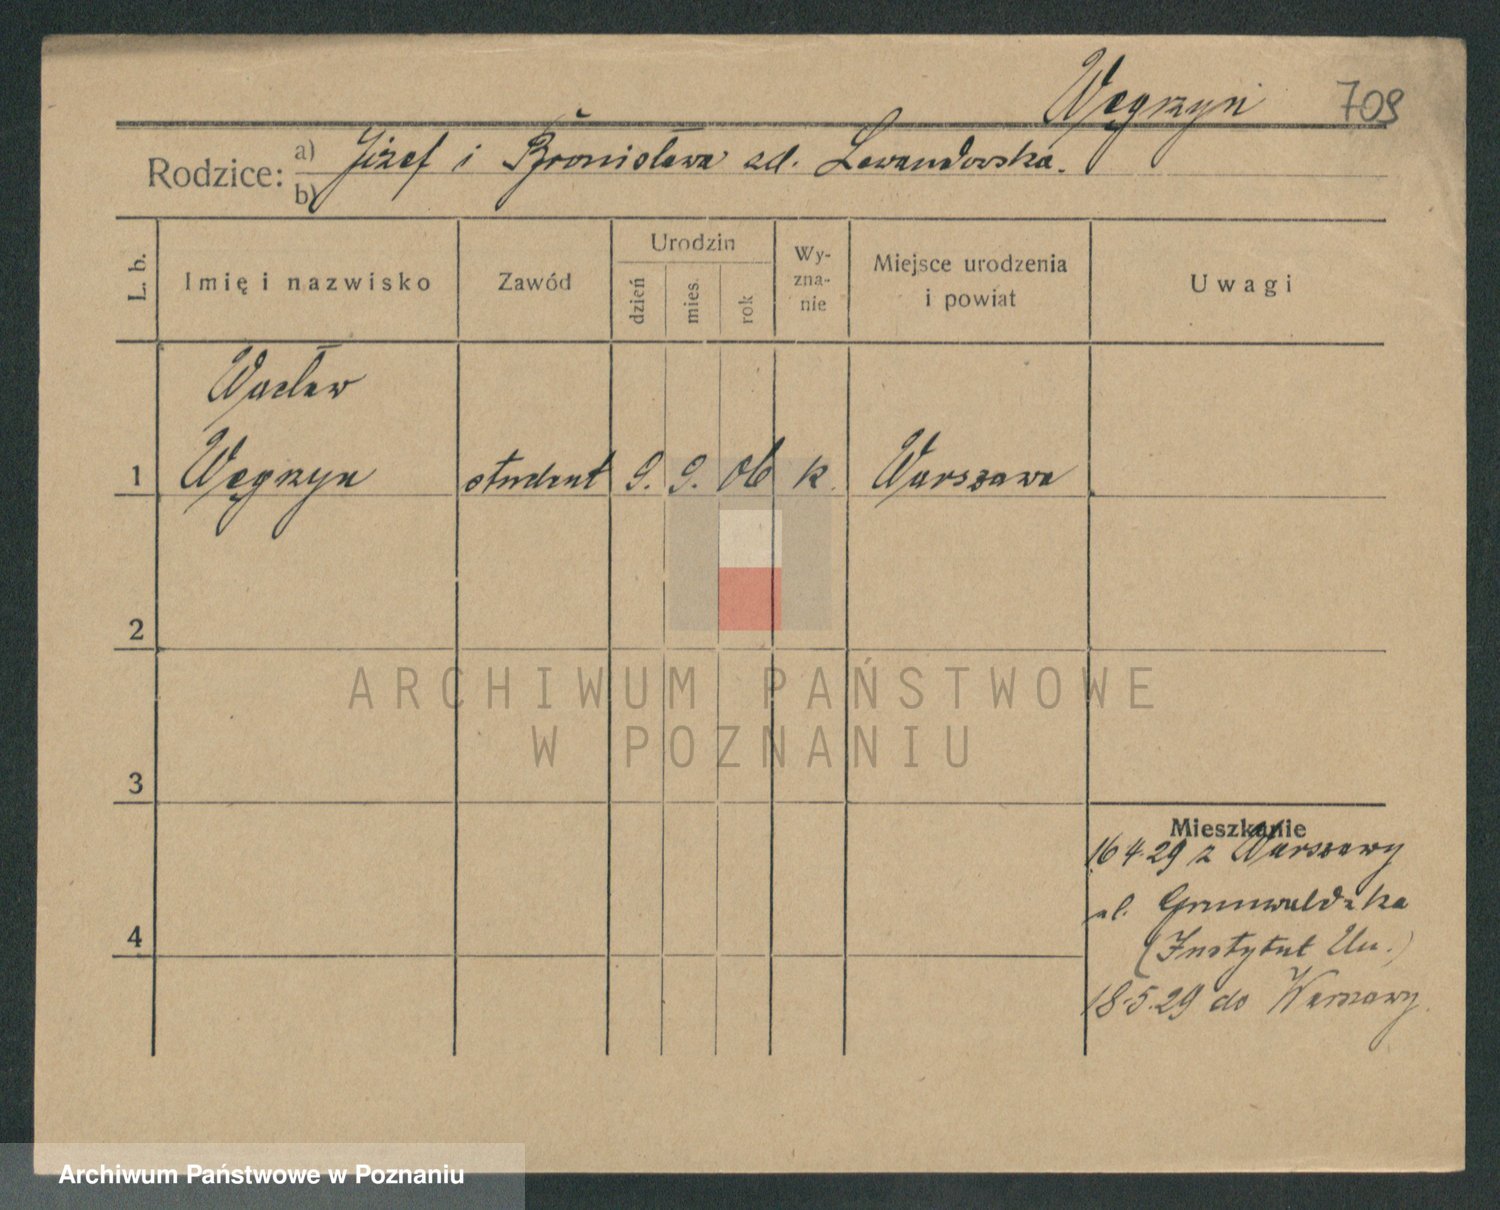 Węgrzyn 709
Rodzice: a) Józef i Bronisława zd. Lewandowska.
b)
L. b. Imię i nazwisko Zawód Urodzin dzień mies. rok Wy-zna-nie Miejsce urodzenia i powiat Uwagi
Wacław
1 Węgrzyn student 9. 9. 06 k. Warszawa
2
3
4
Mieszkanie
16 4.29 z Warszawy
ul. Grunwaldzka
(Instytut Un.)
18.5.29 do Warszawy.
ARCHIWUM PAŃSTWOWE
W POZNANIU
Archiwum Państwowe w Poznaniu